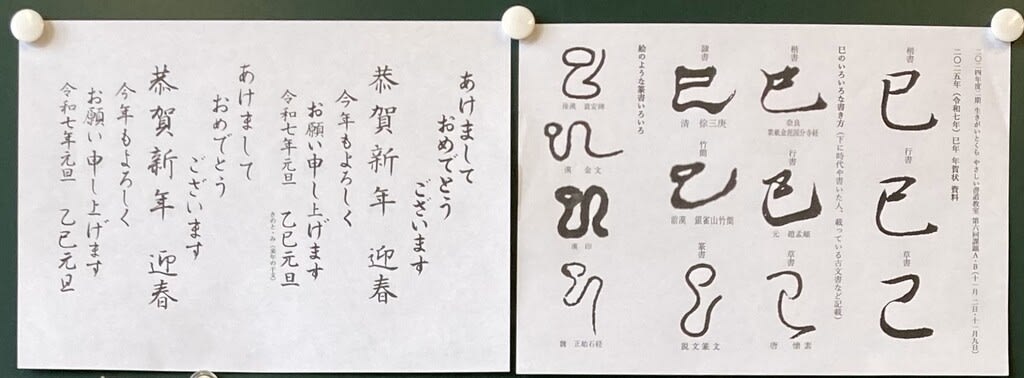 二〇二四年度二期 生きがい やさしい書道教室 第六回課題A・B(十一月 二日・十一月九日)
二〇二五年(令和七年)巳年 年賀状 資料
楷書
巳
行書
巳
草書
巳
巳のいろいろな書き方(下に時代や書いた人、載っている古文書など記載)
楷書
巳
奈良
紫紙金泥国分寺経
行書
巳
元 趙孟頫
草書
巳
唐 懐素
隷書
巳
清 徐三庚
竹簡
巳
前漢 銀雀山竹簡
篆書
巳
説文篆文
絵のような篆書いろいろ
巳
後漢 袁安碑
巳
漢 金文
巳
漢 印
巳
魏 正始石経
あけまして
おめでとう
ございます
恭賀新年 迎春
今年もよろしく
お願い申し上げます
令和七年元旦 乙巳元旦
きのと・み(来年の干支)
あけまして
おめでとう
ございます
恭賀新年 迎春
今年もよろしく
お願い申し上げます
令和七年元旦 乙巳元旦